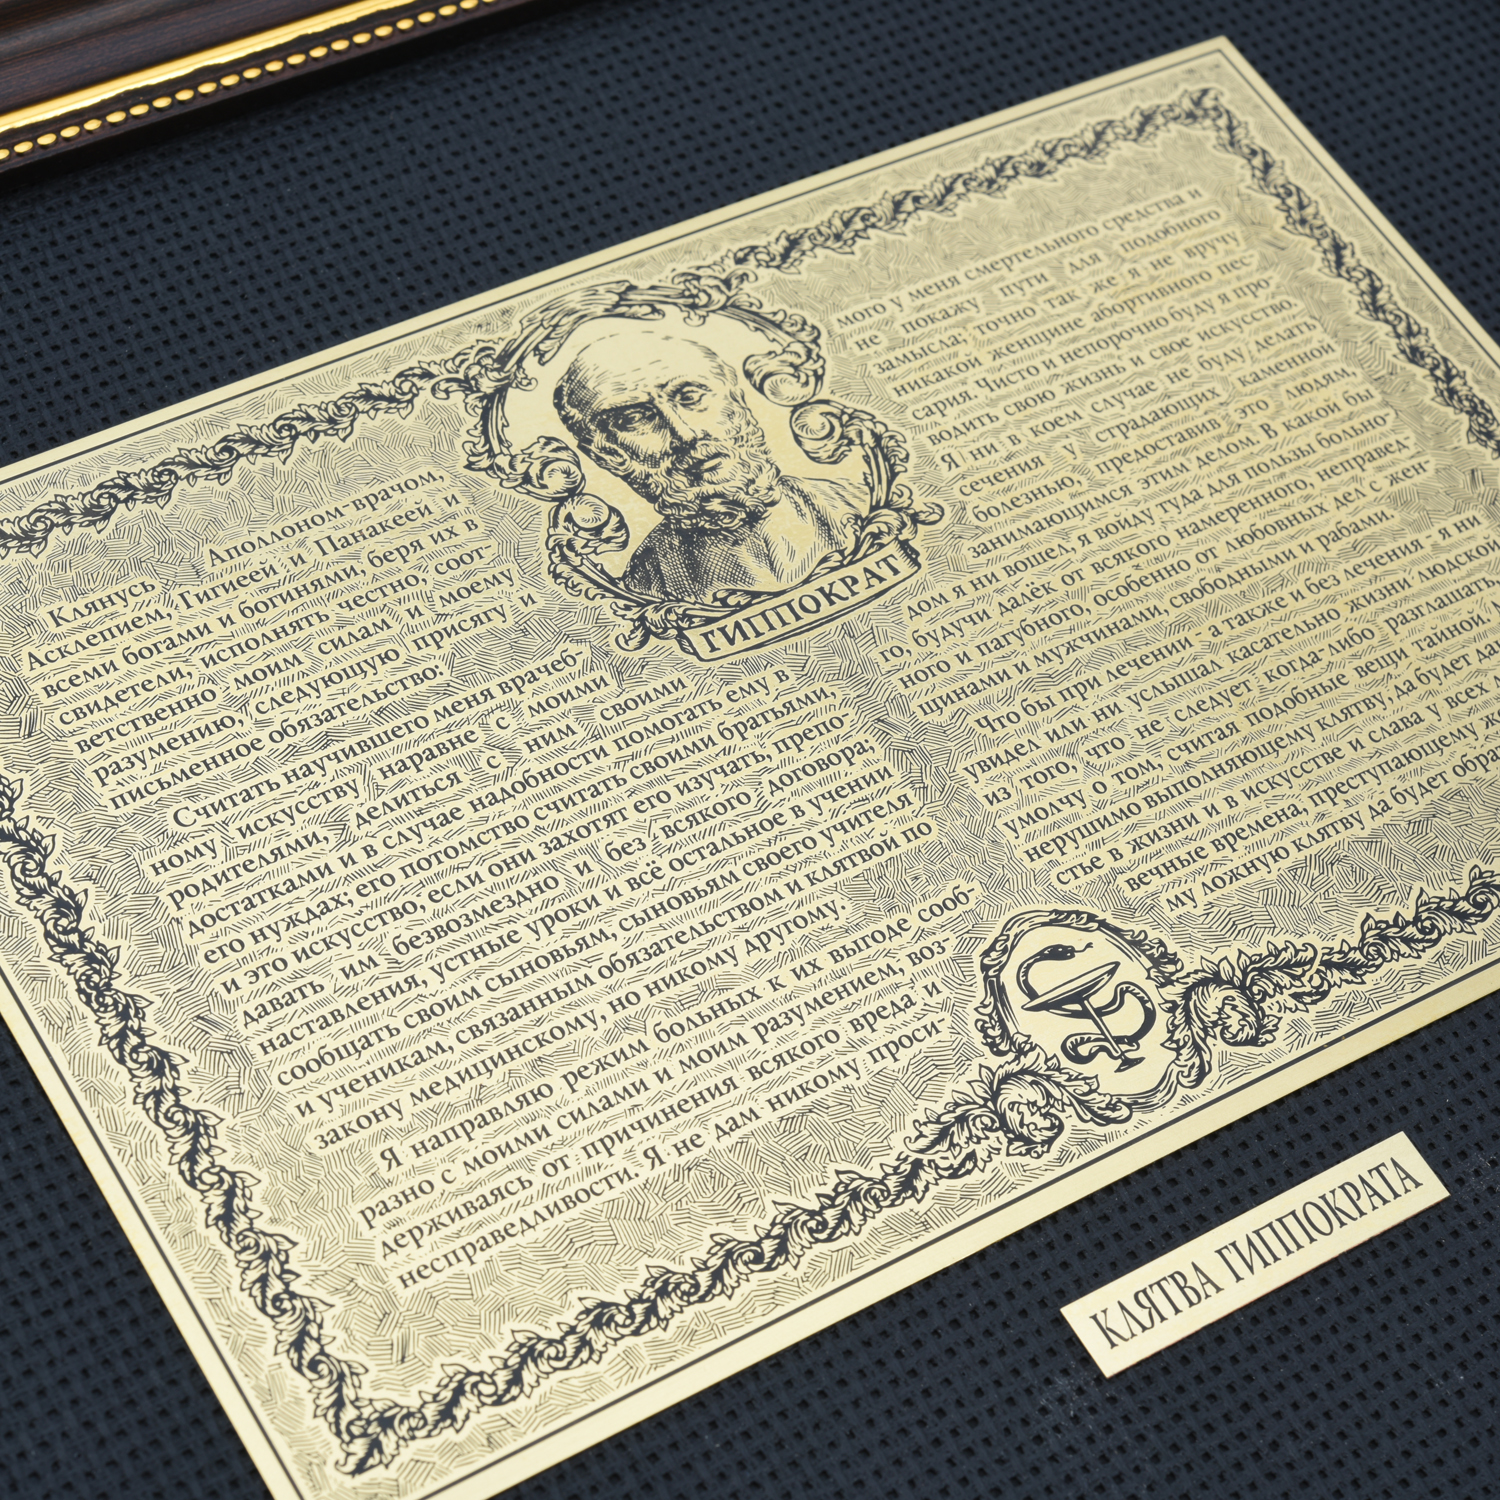 Клянусь Аполлоном-врачом,
Асклепием, Гигиеей и Панакеей и
всеми богами и богинями, беря их в
свидетели, исполнять честно, соот-
ветственно моим силам и моему
разумению, следующую присягу и
письменное обязательство:
Считать научившего меня врачеб-
ному искусству наравне с моими
родителями, делиться с ним своими
достатками и в случае надобности помогать ему в
его нуждах; его потомство считать своими братьями,
и это искусство, если они захотят его изучать, препо-
давать им безвозмездно и без всякого договора;
наставления, устные уроки и всё остальное в учении
сообщать своим сыновьям, сыновьям своего учителя
и ученикам, связанным обязательством и клятвой по
закону медицинскому, но никому другому.
Я направляю режим больных к их выгоде сооб-
разно с моими силами и моим разумением, воз-
держиваясь от причинения всякого вреда и
несправедливости. Я не дам никому проси-
ГИППОКРАТ
мого у меня смертельного средства и
не покажу пути для подобного
замысла; точно так же я не вручу
никакой женщине абортивного пес-
сария. Чисто и непорочно буду я про-
водить свою жизнь и свое искусство.
Я ни в коем случае не буду делать
сечения у страдающих каменной
болезнью, предоставив это людям,
занимающимся этим делом. В какой бы
дом я ни вошел, я войду туда для пользы больно-
го, будучи далёк от всякого намеренного, неправед-
ного и пагубного, особенно от любовных дел с жен-
щинами и мужчинами, свободными и рабами.
Что бы при лечении - а также и без лечения - я ни
увидел или ни услышал касательно жизни людской
из того, что не следует когда-либо разглашать,
умолчу о том, считая подобные вещи тайной.
нерушимо выполняющему клятву, да будет дан
стье в жизни и в искусстве и слава у всех
вечные времена, преступающему же
му ложную клятву да будет обра
КЛЯТВА ГИППОКРАТА